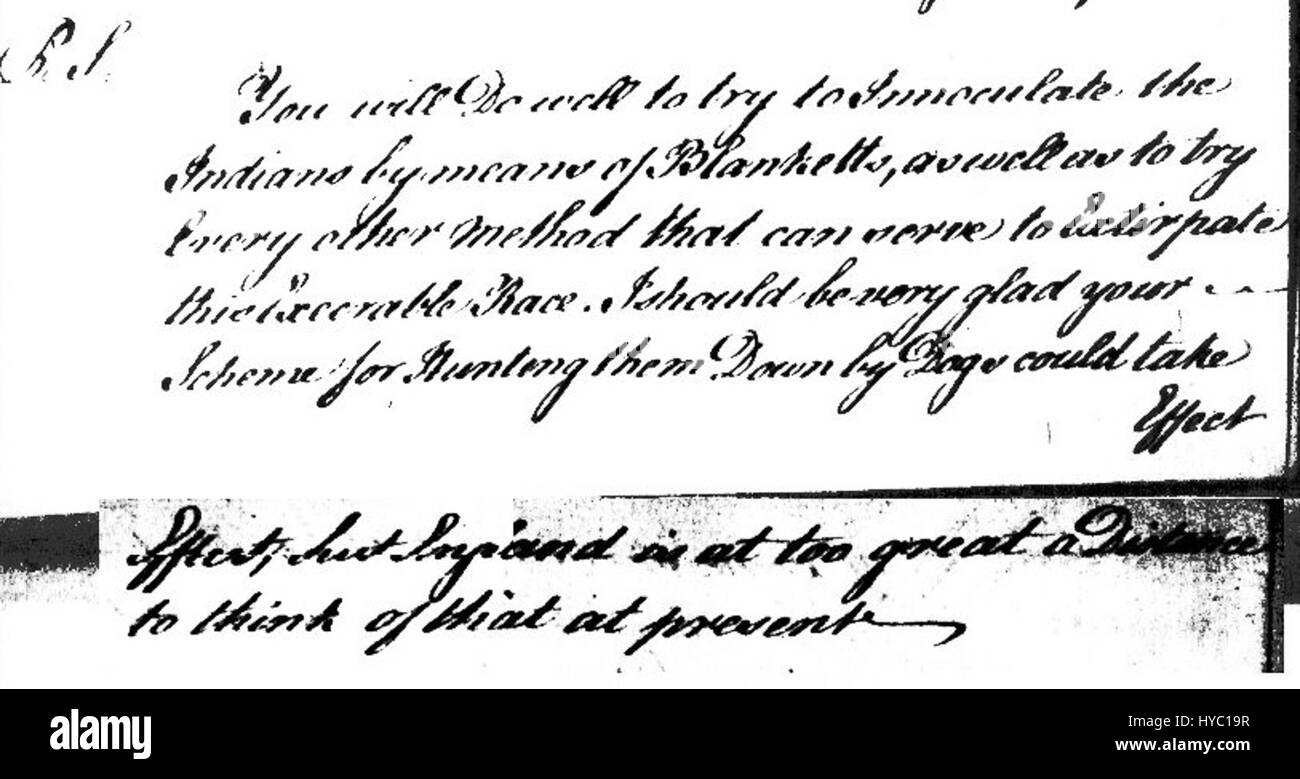 P.S.
You will Do well to try to Innoculate the
Indians by means of Blanketts, as well as to try
Every other Method that can serve to Extirpate
this Execrable Race. I should be very glad your
Scheme for Hunting them Down by Dogs could take
Effect
Effect, but England is at too great a Distance
to think of that at present
alamy
Image ID: HYC19R
www.alamy.com